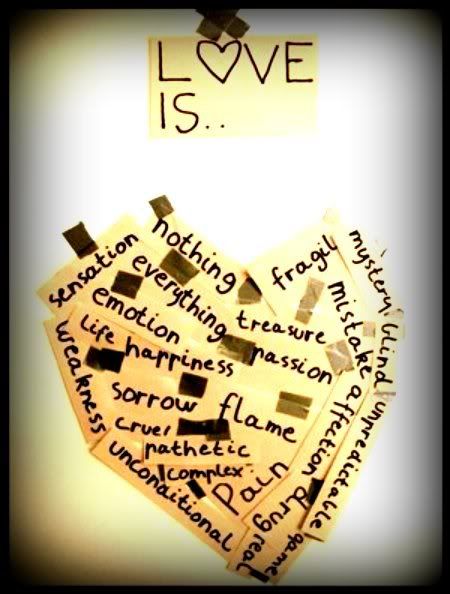 L♡VE
IS..
nothing
sensation
everything
fragil
mystery
emotion
treasure
mistake
blind
life
happiness
passion
weakness
sorrow
flame
affection
unpredictable
cruel
pathetic
unconditional
complex
Pain
drug
game
real